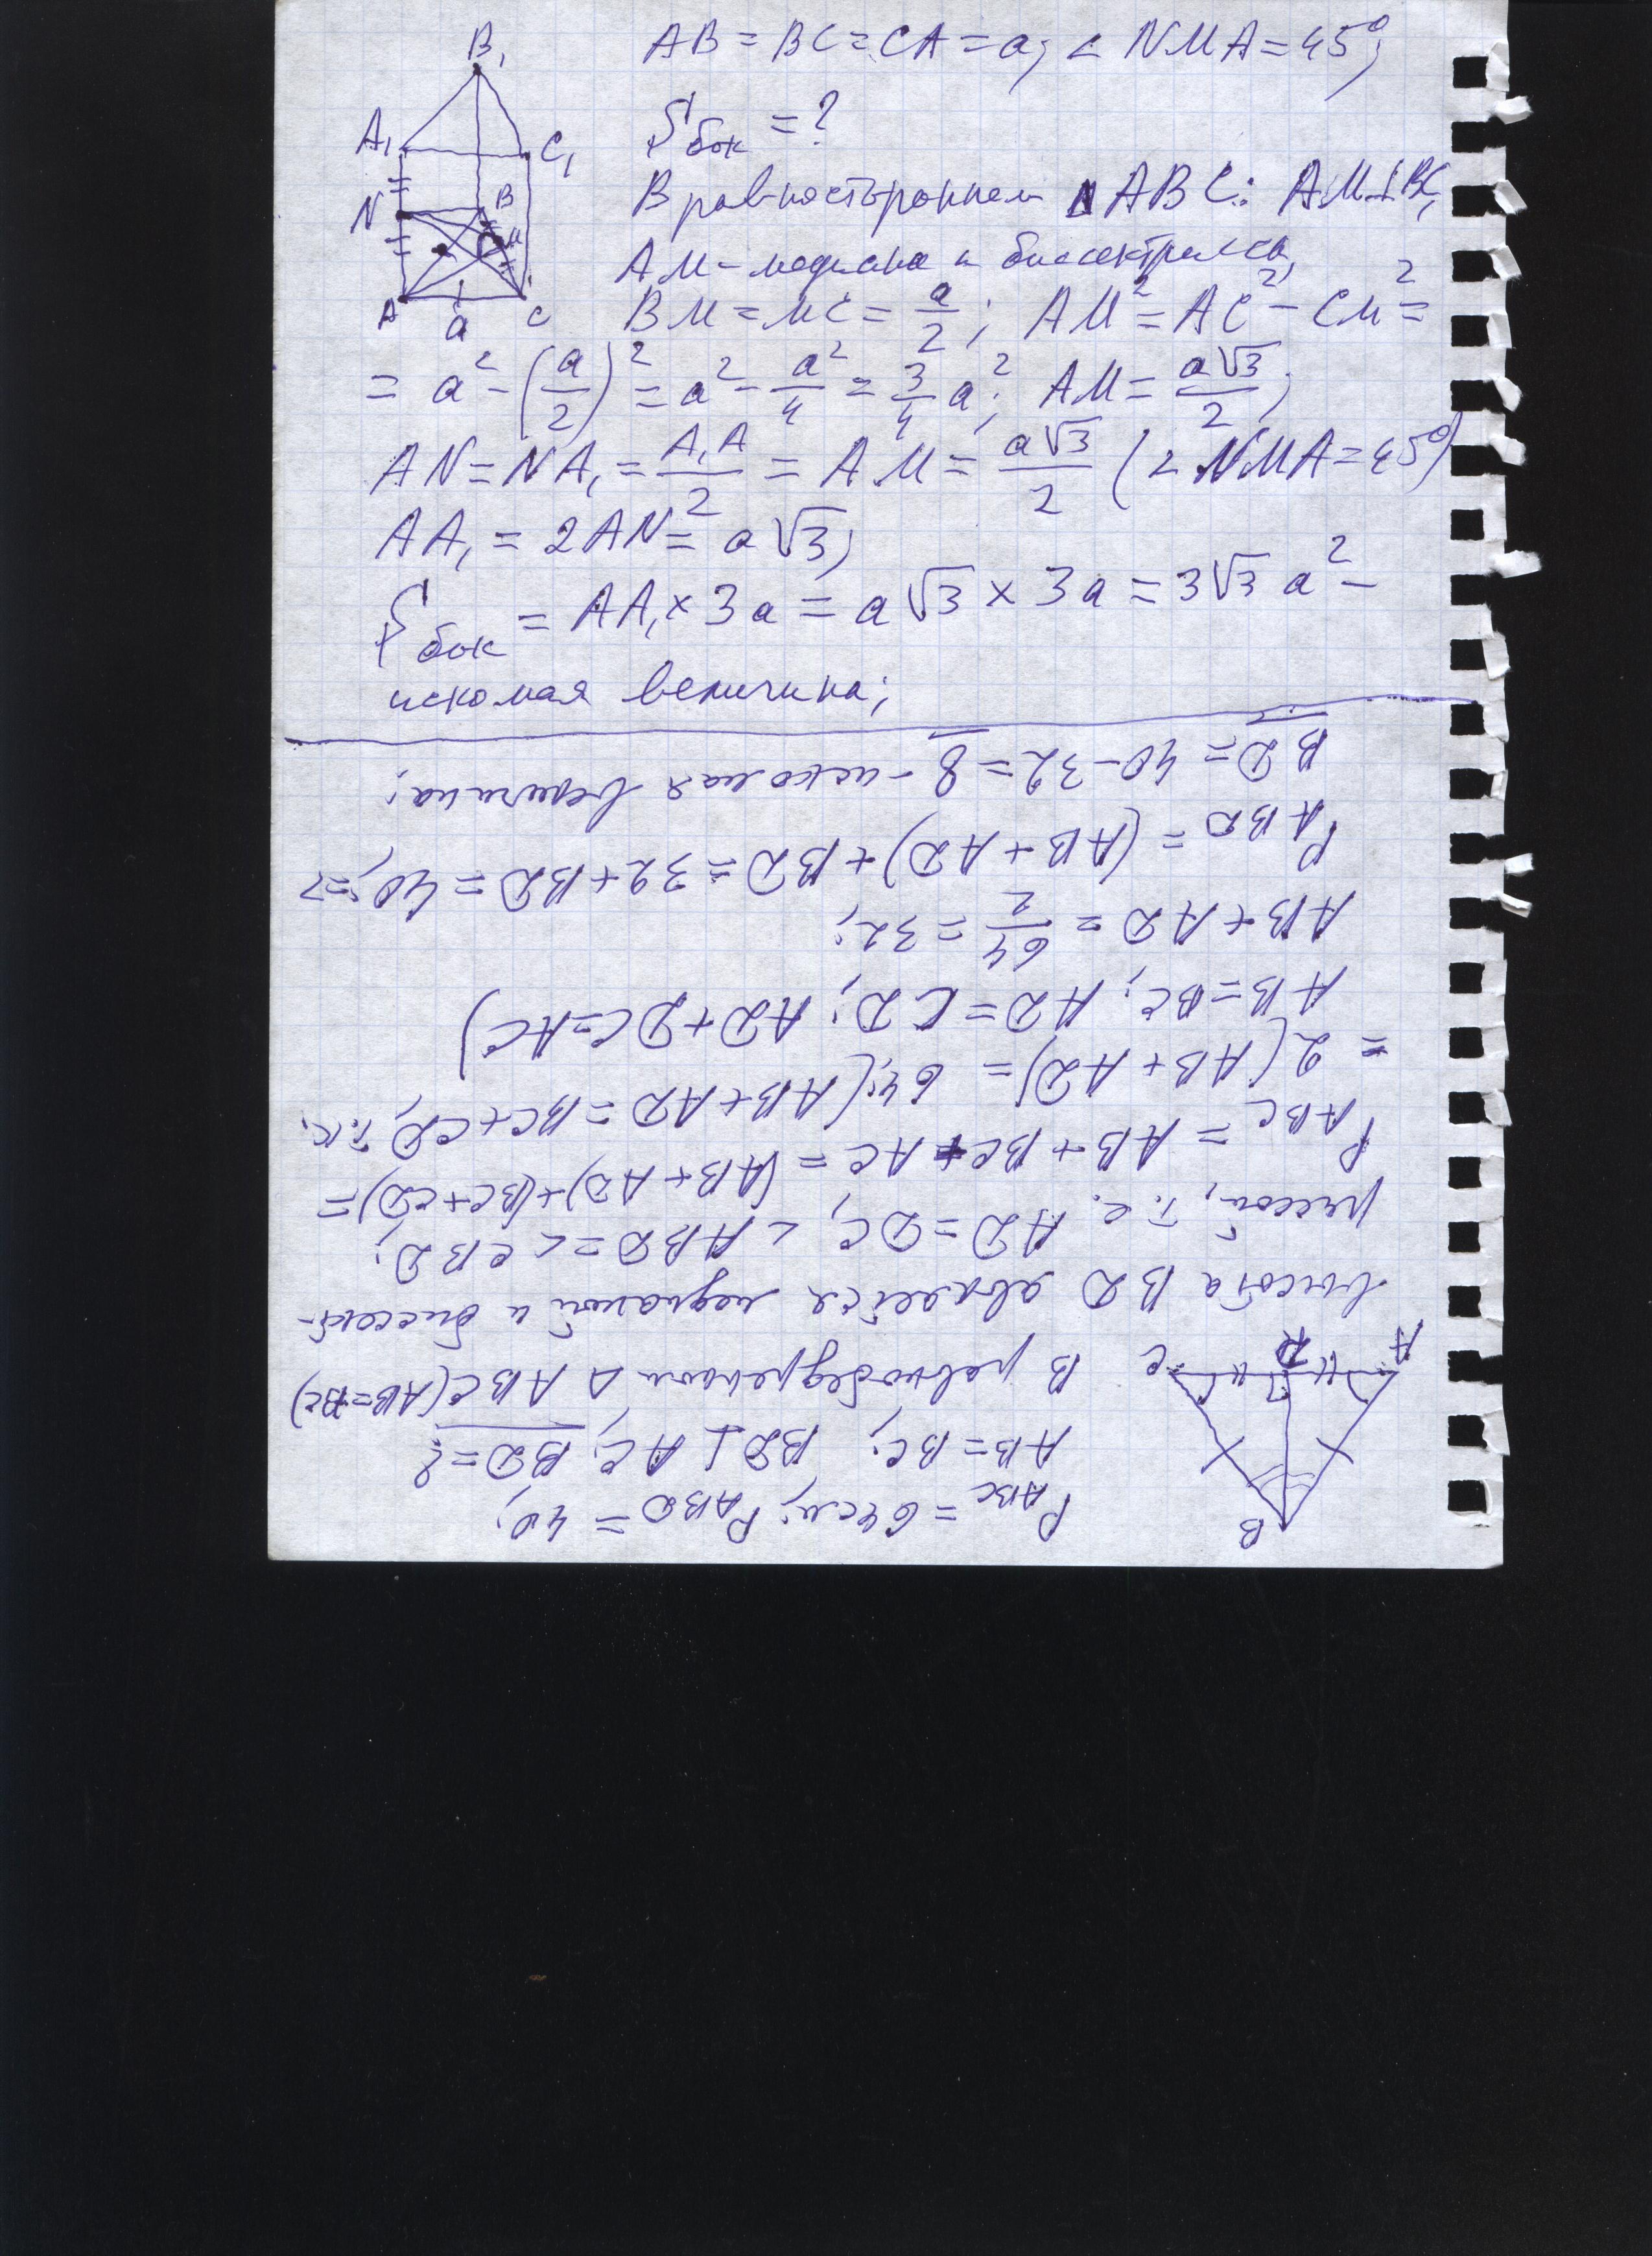 B₁
A₁
C₁
N
B
M
A
a
C
AB = BC = CA = a; < NMA = 45°;
Sбок = ?
В равностороннем ΔABC: AM⊥BC,
AM - медиана и биссектриса,
BM = MC = a/2; AM² = AC² - CM² =
= a² - (a/2)² = a² - a²/4 = 3/4 a²; AM = a√3/2;
AN = NA₁ = A₁A/2 = AM = a√3/2 (< NMA = 45°)
AA₁ = 2AN = a√3;
Sбок = AA₁ × 3a = a√3 × 3a = 3√3 a² -
искомая величина;
B
A
D
C
P ABC = 64 см; P ABD = 40;
AB = BC; BD ⊥ AC; BD = ?
В равнобедренном Δ ABC (AB = BC)
высота BD является медианой и биссект-
риссой, т.е. AD = DC, < ABD = < CBD;
P ABC = AB + BC + AC = (AB + AD) + (BC + CD) =
= 2(AB + AD) = 64; (AB + AD = BC + CD, т.к.
AB = BC; AD = CD; AD + DC = AC)
AB + AD = 64/2 = 32;
P ABD = (AB + AD) + BD = 32 + BD = 40; =>
BD = 40 - 32 = 8 - искомая величина;